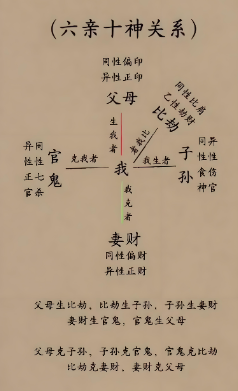 （六亲十神关系）
同性偏印
异性正印
父母
同性比肩
乙性劫财
比劫
生我者
者我比
异同
性性
正七
官杀
官鬼
克我者
我
我生者
子孙
同异
性性
食伤
神官
我克者
妻财
同性偏财
异性正财
父母生比劫、比劫生子孙、子孙生妻财
妻财生官鬼，官鬼生父母
父母克子孙、子孙克官鬼、官鬼克比劫
比劫克妻财、妻财克父母